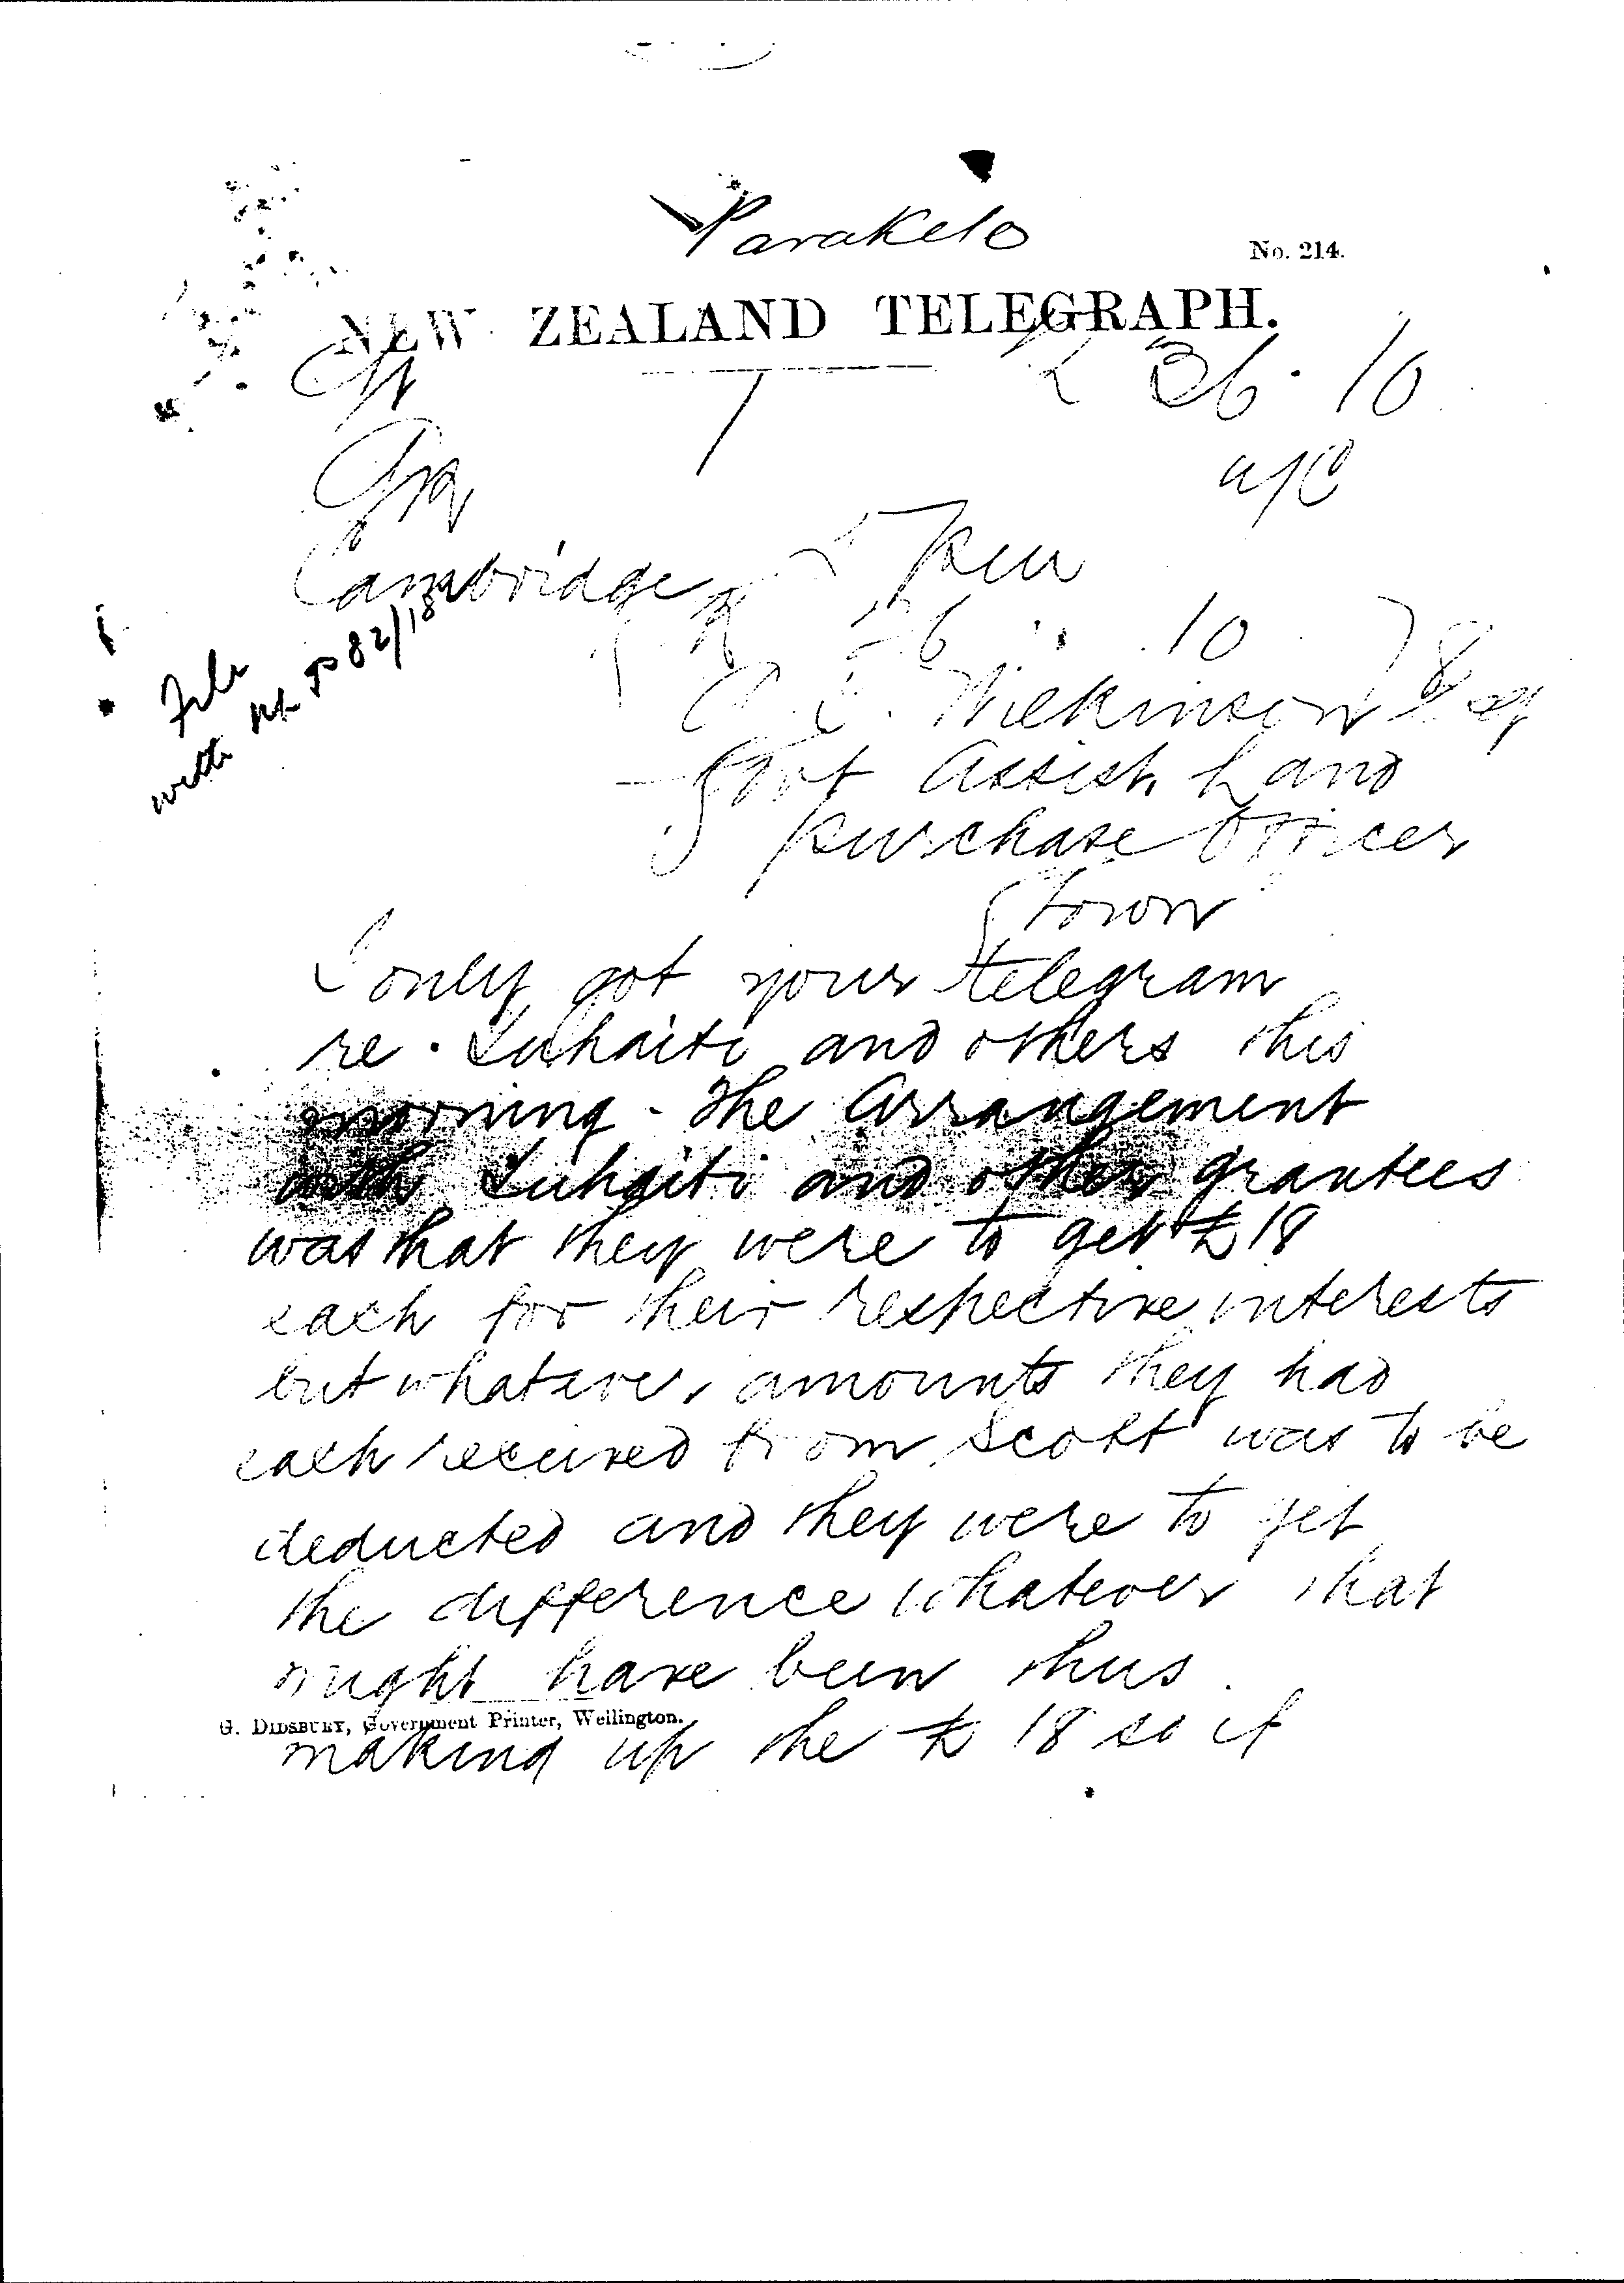 Parakelo
No. 214.
NEW ZEALAND TELEGRAPH.
36 . 10
a/c
Cambridge
File
with
82/18
6 . 10
78
Wilkinson Esq
Govt Assist. Land
purchase Officer
Town
I only got your telegram
re . Tuhaiti and others this
morning - The Arrangement
with Tuhaiti and other grantees
was that they were to get £18
each for their respective interests
but whatever amounts they had
each received from Scott was to be
deducted and they were to get
the difference whatever that
might have been thus
G. DIDSBURY, Government Printer, Wellington.
making up the £18 so if